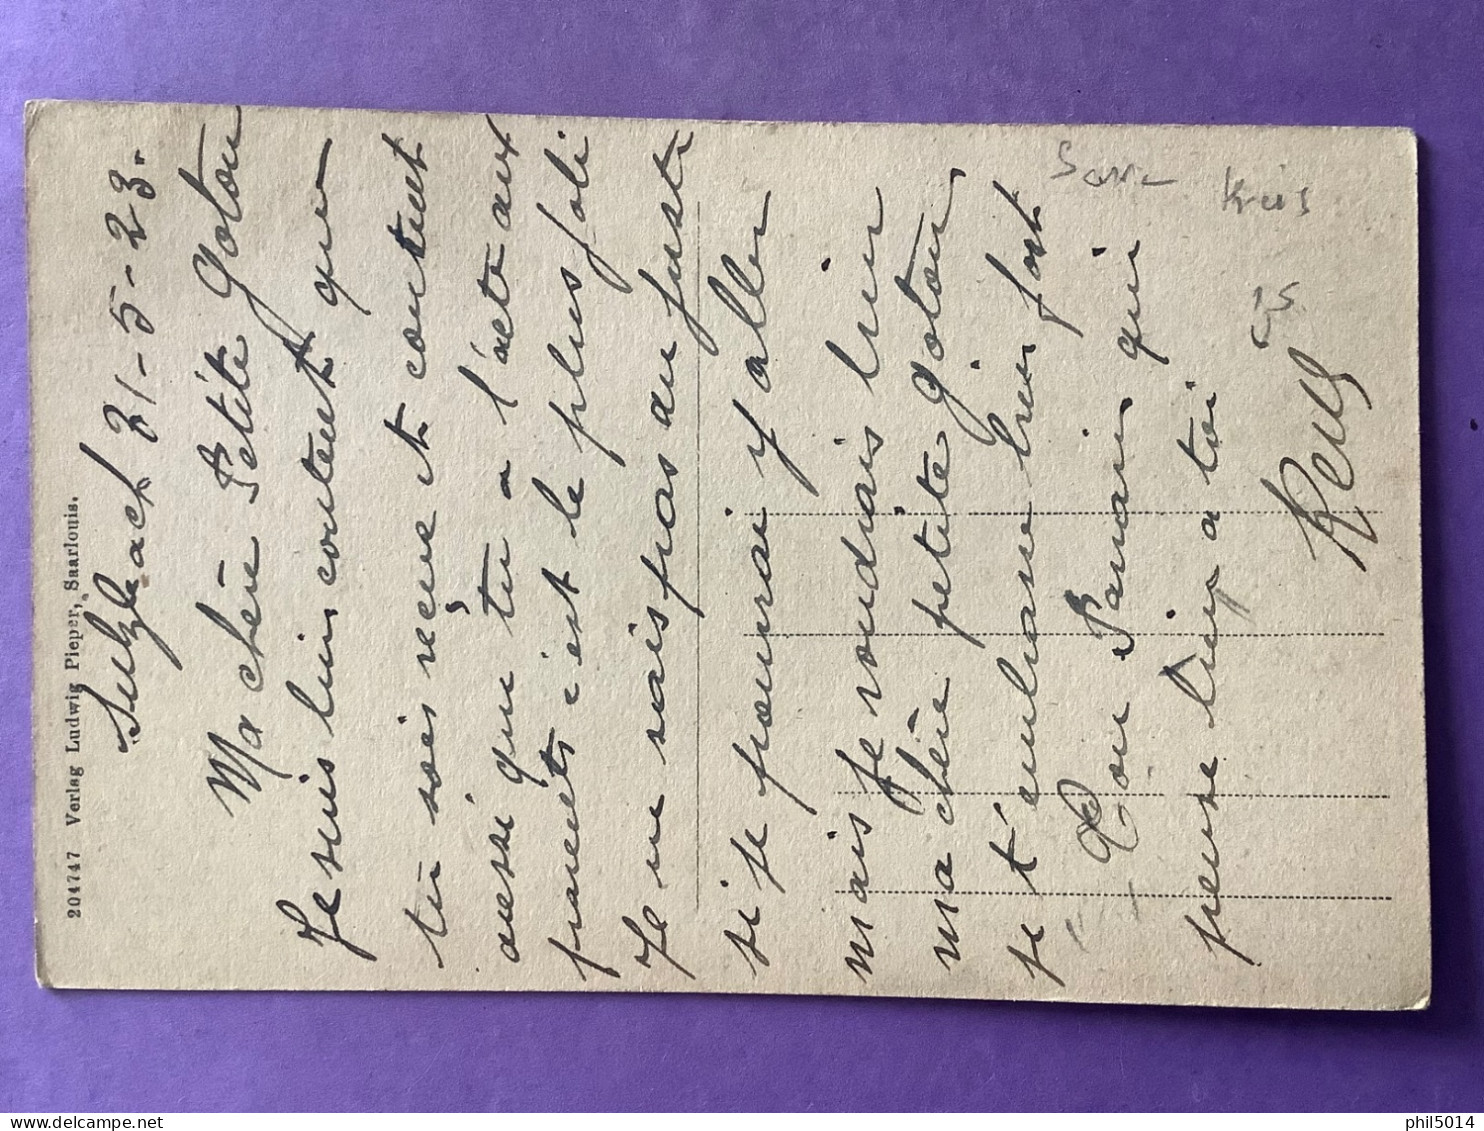 204747 Verlag Ludwig Pieper, Saarlouis.
Sulzbach 31-5-23.
Ma chère Petite Gotou
Je suis bien content que
tu sois reçue et content
aussi que tu a l'acte aux
parents c'est le plus joli
Je ne sais pas au juste
si je pourrai y aller
mais je voudrais bien
ma chère petite gotou
je t'embrasse bien fort
Ton Parrain qui
pense bien a toi
Sarre Kreis
15
phil5014